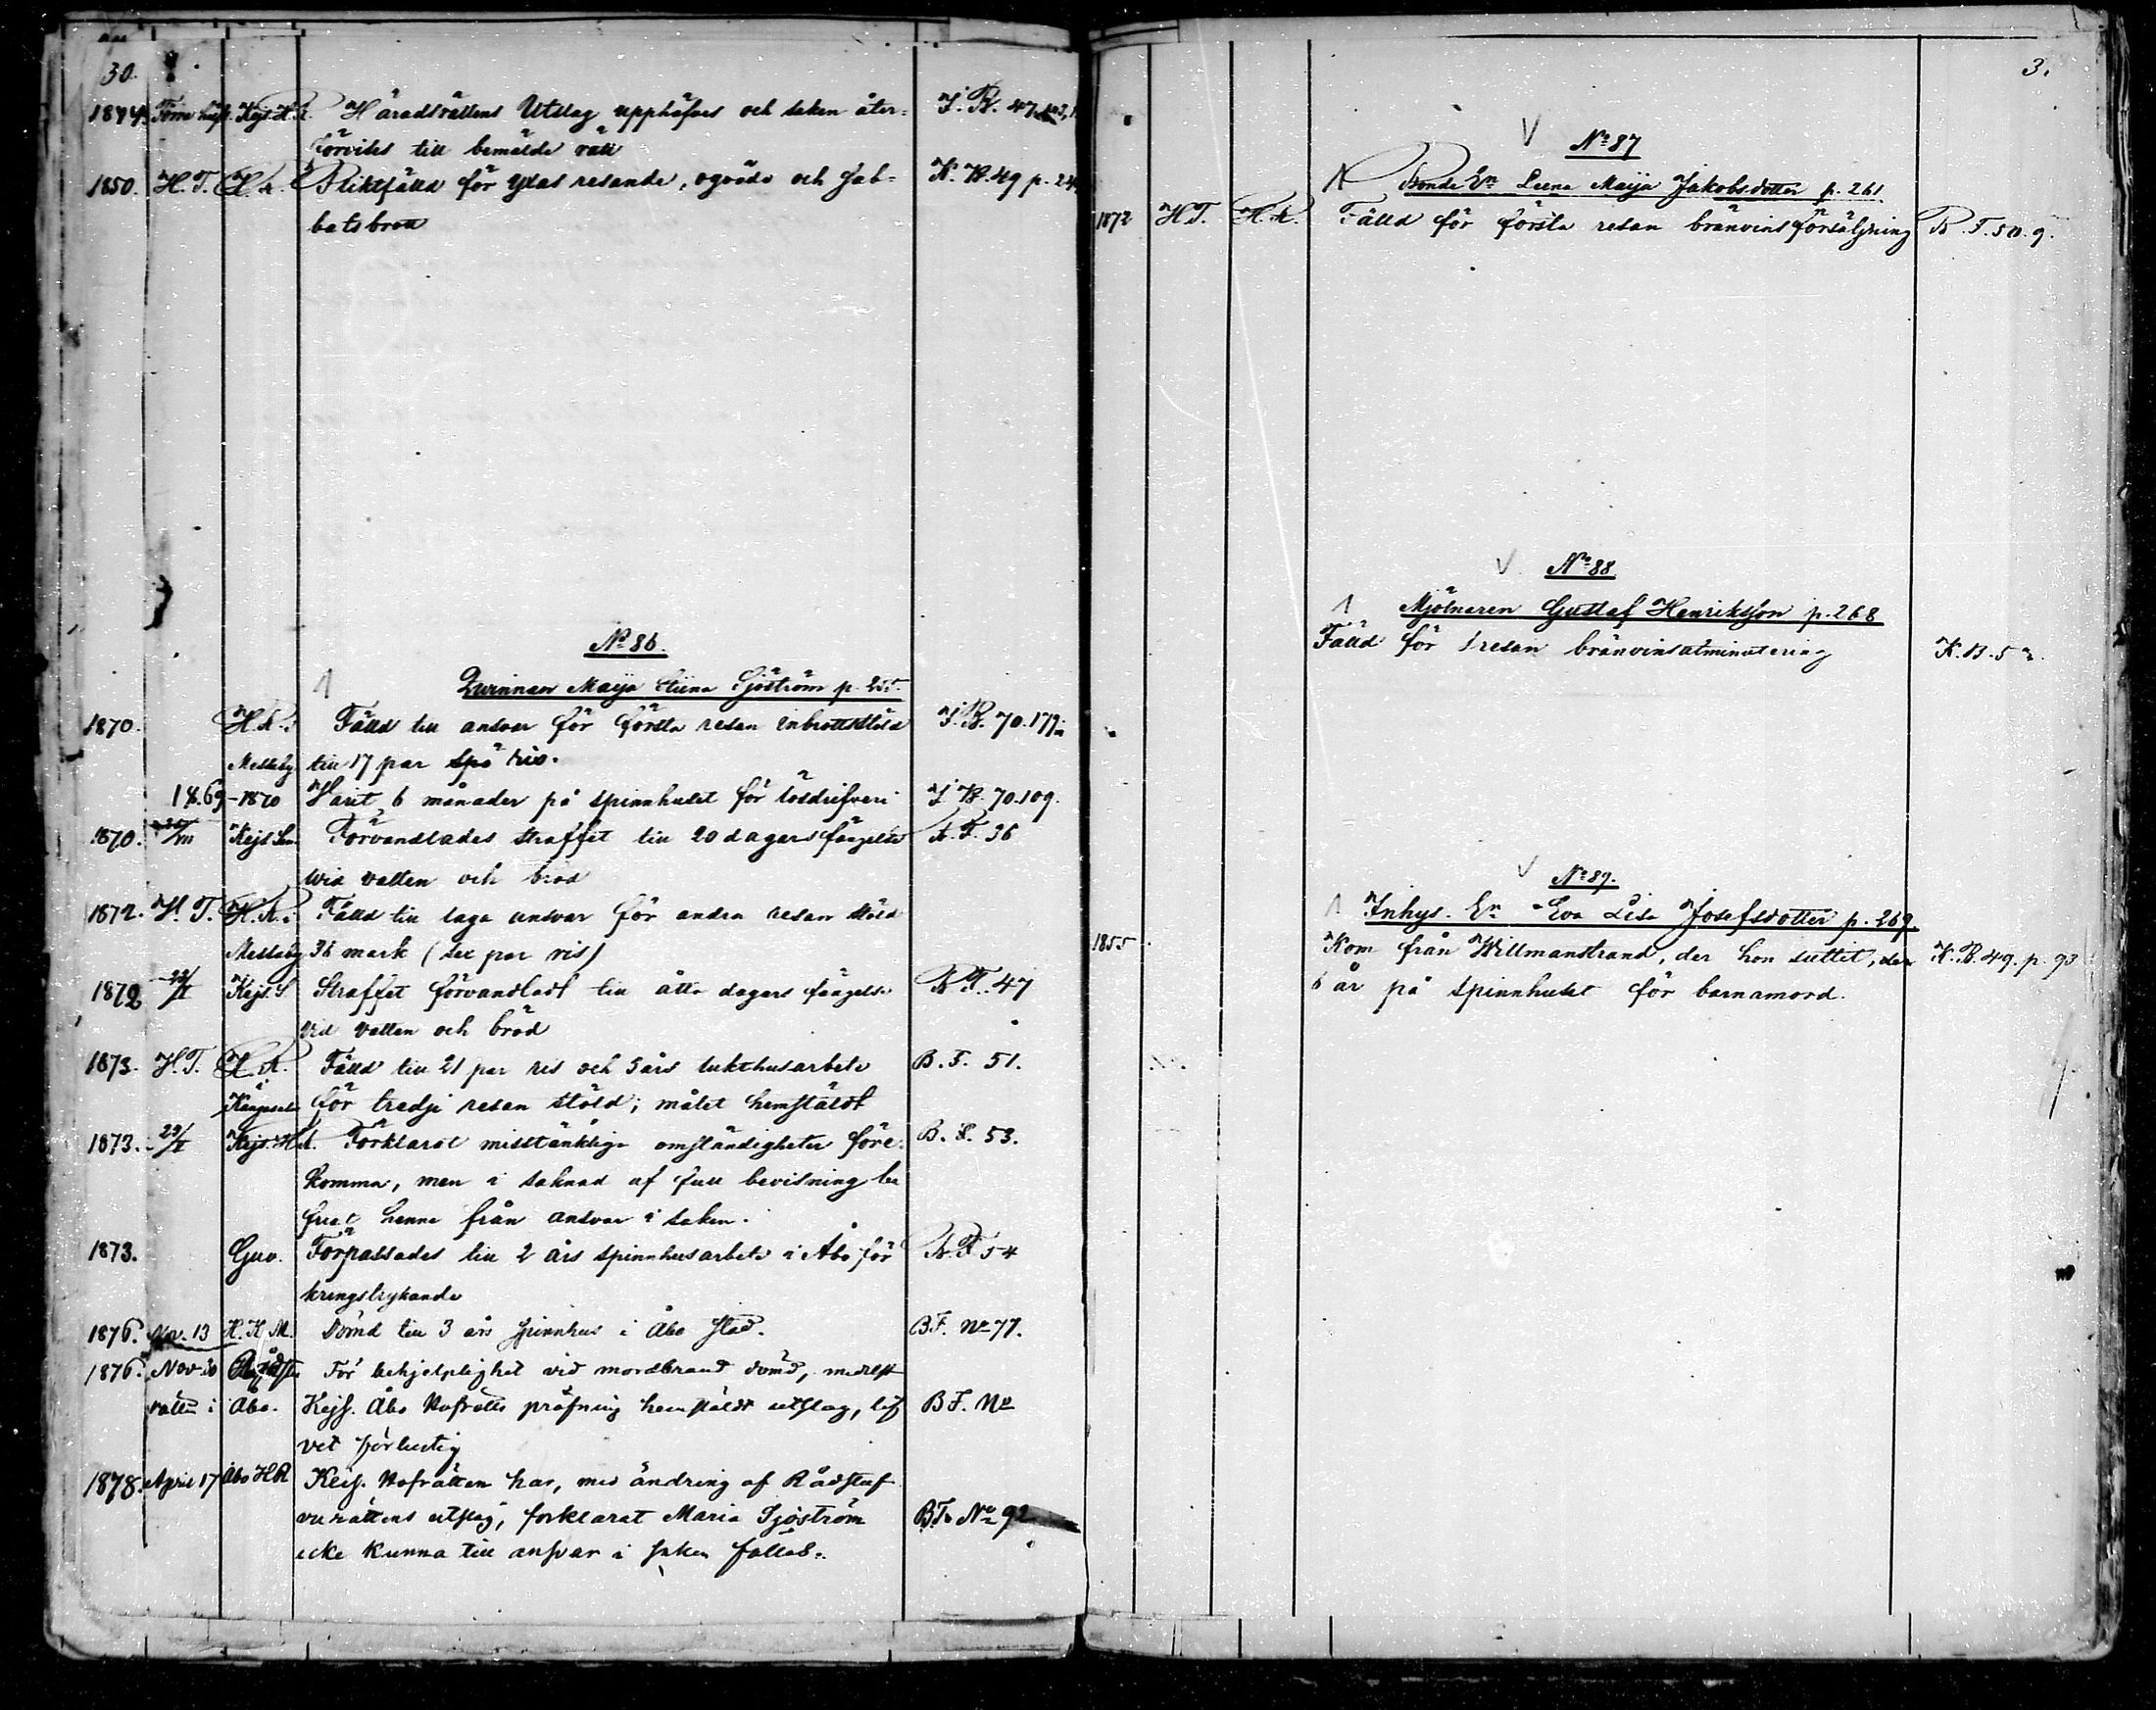 30.
1844. Kejs. H. R. Häradsrättens Utslag upphäfves och saken åter= J. B. 47
förvises till bemälde rätt
1850. H. T. H. R. Pliktfälld för ylas resande, oqväde och sab= K. B. 49 p.
batsbrott
No 86.
Qvinnan Maija Stiina Sjöström p. 255.
1870. H. R. i Fälld till ansvar för första resan inbrottsstöld J. B. 70.179
Messuby till 17 par spö ris.
1869-1870 Varit 6 månader på spinnhuset för lösdrifveri J. B. 70.109.
1870. Kejs. Sen. Förvandlades straffet till 20 dagars fängelse B. F. 36
wid vatten och bröd
1872. H. T. H. R. i Fälld till laga ansvar för andra resan stöld
Messuby 36 mark (sex par ris)
1872 Kejs. S Straffet förvandladt till åtta dagars fängelse B F. 47
vid vatten och bröd
1873. H. T. H. R. Fälld till 21 par ris och 5 års tukthusarbete B. F. 51.
Kangasala för tredje resan stöld; målet hemstäldt
1873. 29/ Kejs. H. R. Förklarat misstänkliga omständigheter före= B. F. 53.
komma, men i saknad af full bevisning be
friat henne från ansvar i saken.
1873. Guv. Förpassades till 2 års spinnhusarbete i Åbo för B. F 54
kringstrykande
1876. Nov. 13 H. K. M. Dömd till 3 års spinnhus i Åbo stad. B F. No 77.
1876. Nov. 30 För behjelplighet vid mordbrand dömd, medelst
rätten i Åbo. Kejs. Åbo Hofrätts pröfning hemstäldt utslag, lif B F. No
vet förlustig
1878. April 17 Åbo H R Kejs. Hofrätten har, med ändring af Rådstuf
vurättens utslag, förklarat Maria Sjöström B. F. No 92
icke kunna till ansvar i saken fällas.
3.
No 87
Bonde En Leena Maija Jakobsdotter p. 261
1872 H T. H. R. Fälld för första resan bränvins försäljning B. F. 50. 9.
No 88
Mjölnaren Gustaf Henriksson p. 268
Fälld för 1 resan bränvinsutminutering K. B. 5
No 89.
Inhys. En Eva Lisa Josefsdotter p. 269.
1855 Kom från Willmanstrand, der hon suttit, der K. B. 49. p. 93
6 år på spinnhuset för barnamord.